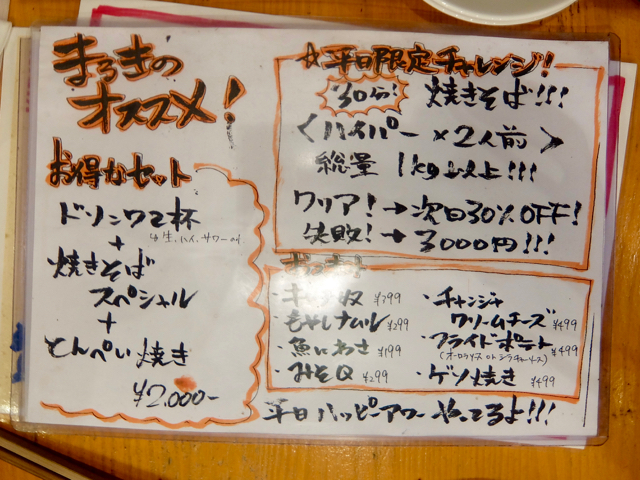 まろきの
オススメ!
お得なセット
ドリンク2杯
↳生、ハイ、サワー or
+
焼きそば
スペシャル
+
とんぺい焼き
¥2,000-
☆平日限定チャレンジ!
30分! 焼きそば!!!
〈ハイパー×2人前〉
総量 1kg以上!!!
クリア!→次回30%OFF!
失敗!→3000円!!!
・キムチ奴 ¥299
・もやしナムル ¥299
・魚にわさ ¥199
・みそQ ¥299
・チャンジャ
クリームチーズ ¥499
・フライドポテト ¥499
(オーロラソース or シラチャーソース)
・ゲソ焼き ¥499
平日ハッピーアワーやってるよ!!!